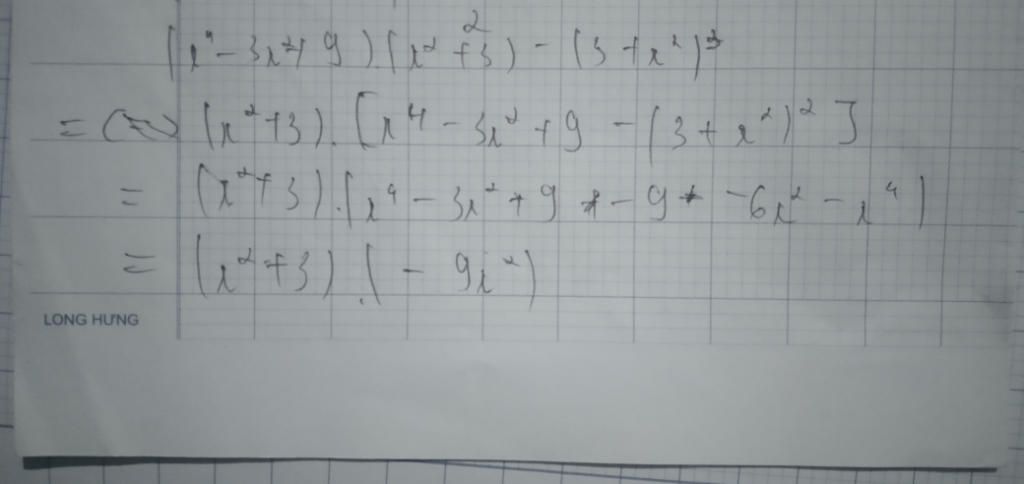 (x⁴ - 3x² + 9).(x² + 3) - (3 + x²)³
= (x² + 3).[x⁴ - 3x² + 9 - (3 + x²)²]
= (x² + 3).(x⁴ - 3x² + 9 - 9 - 6x² - x⁴)
= (x² + 3).(- 9x²)
LONG HƯNG